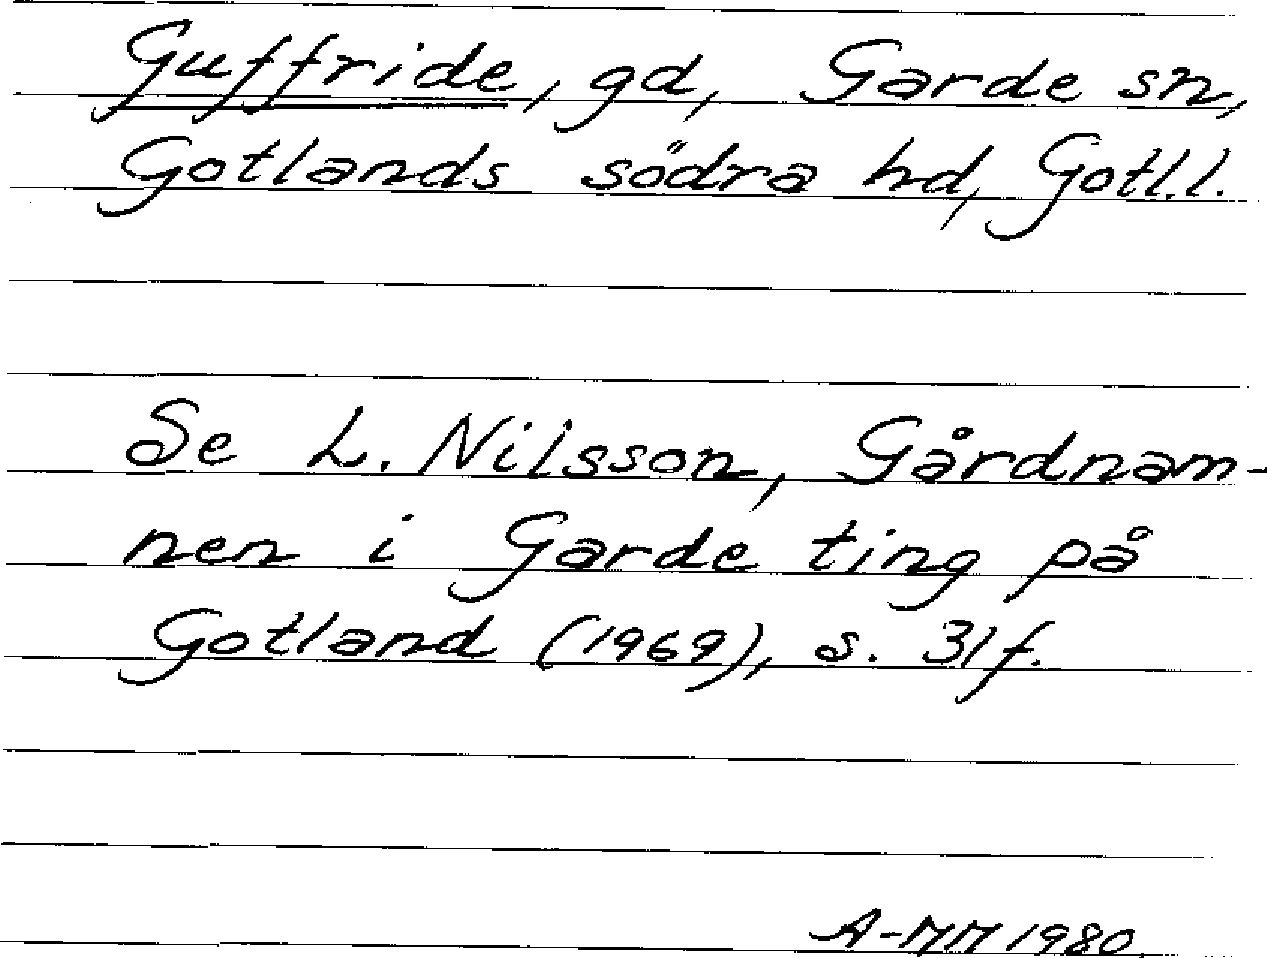 Guffride, gd, Garde sn,
Gotlands södra hd, Gotl.l.
Se L. Nilsson, Gårdnam-
nen i Garde ting på
Gotland (1969), s. 31f.
A-MM 1980.